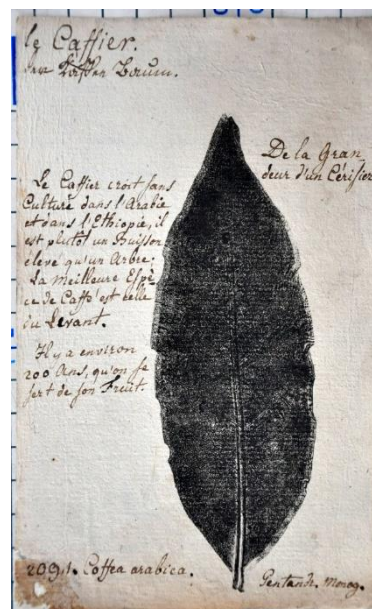 le Caffier.
Der Koffee Baum.
De la Gran
deur d'un Cérisier
Le Caffier croit sans
Culture dans l'Arabie
et dans l'Ethiopie, il
est plutôt un Buisson
élevé qu'un Arbre;
La meilleure Espè
ce de Caffé est celle
du Levant.
Il y a environ
200 Ans, qu'on se
sert de son Fruit
2091. Coffea arabica.
Pentandr. Monog.